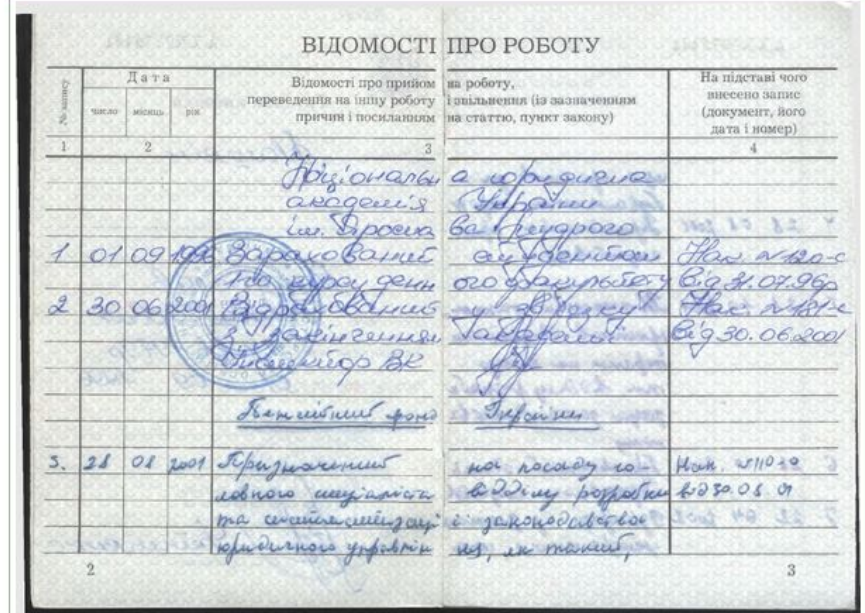 ВІДОМОСТІ ПРО РОБОТУ
№ запису
Дата
число місяць рік
Відомості про прийом на роботу,
переведення на іншу роботу і звільнення (із зазначенням
причин і посиланням на статтю, пункт закону)
На підставі чого
внесено запис
(документ, його
дата і номер)
1 2 3 4
Національна юридична
академія України
ім. Ярослава Мудрого
1 01 09 1996 Зарахований студентом Нак. №120-с
1го курсу денного факультету від 31.07.96р
2 30 06 2001 Відрахований у зв'язку Нак. №181-с
з закінченням академії від 30.06.2001
Інспектор ВК
Пенсійний фонд України
3. 28 08 2001 Призначений на посаду го Нак.
ловного спеціаліста відділу розробки від 30.08 01
та систематизації законодавства
юридичного управління, як такий,
2 3